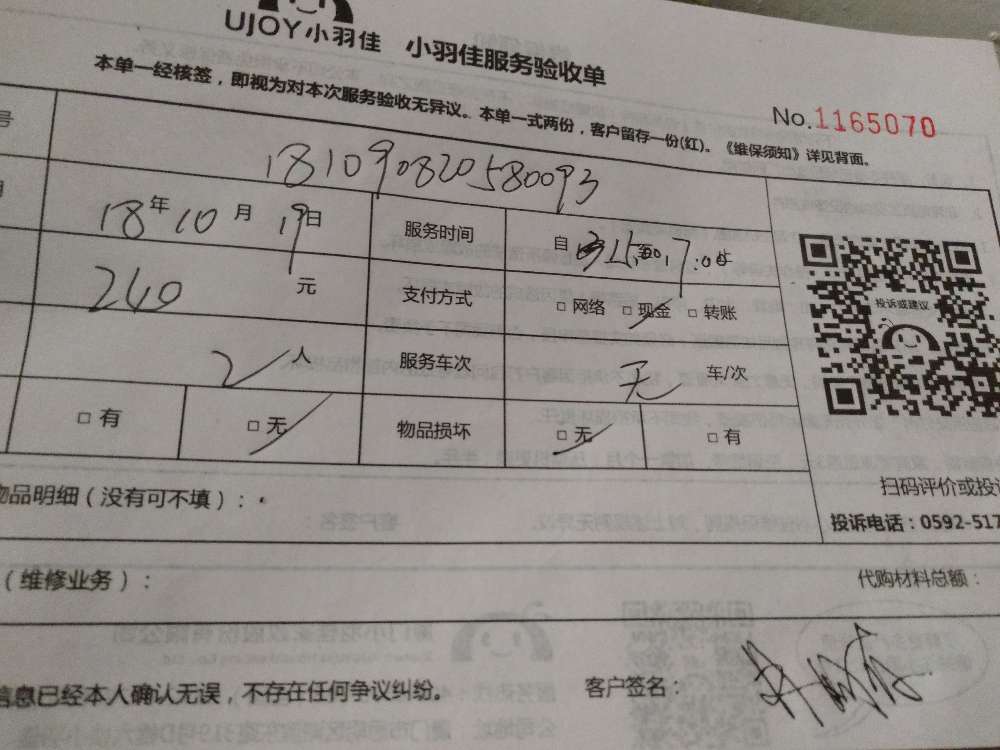 UJOY小羽佳 小羽佳服务验收单
本单一经核签，即视为对本次服务验收无异议。本单一式两份，客户留存一份(红)。《维保须知》详见背面。
No.1165070
号
181090820580093
18年10月19日 服务时间 自
240元 支付方式 □网络 □现金 □转账
2人 服务车次 无 车/次
□有 □无 物品损坏 □无 □有
投诉或建议
物品明细（没有可不填）：
扫码评价或投诉
投诉电话：0592-517
（维修业务）：
代购材料总额：
信息已经本人确认无误，不存在任何争议纠纷。 客户签名：